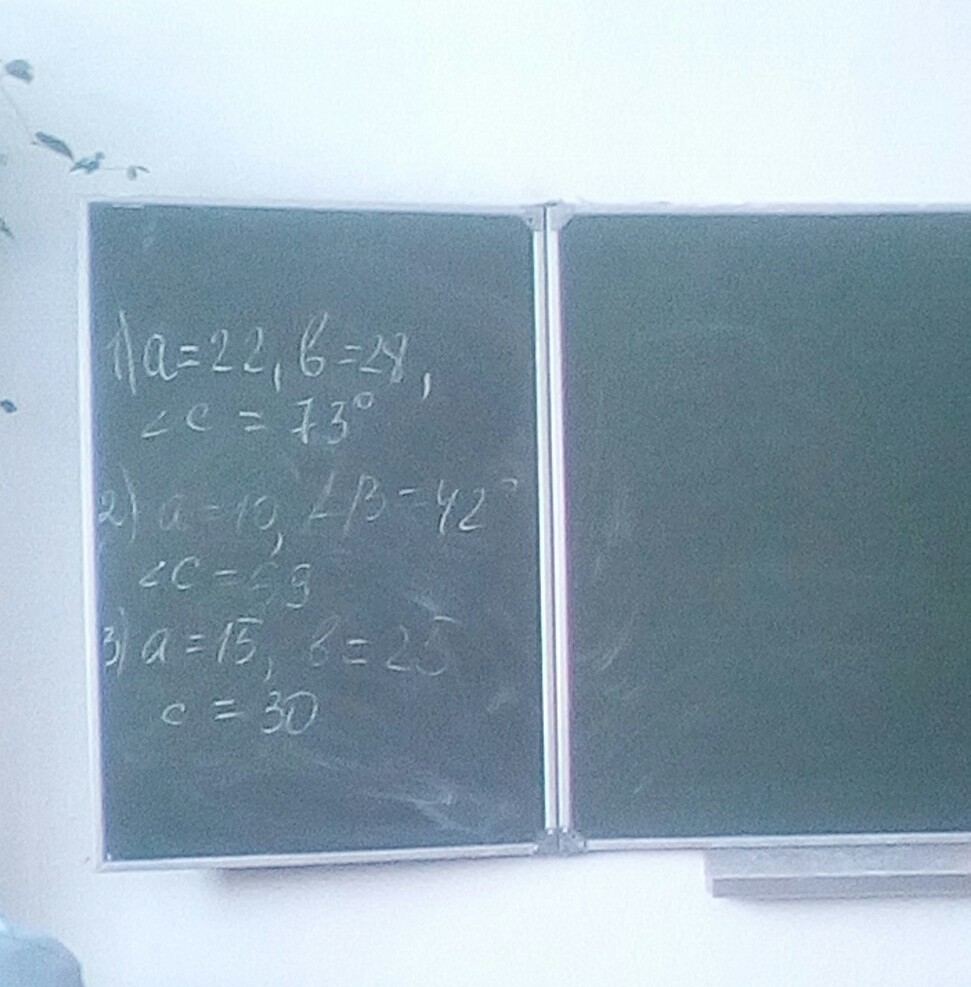 1) a=22, в=28,
∠C = 73°
2) a=10, ∠B=42°
∠C=69
3) a=15, в=25
c = 30